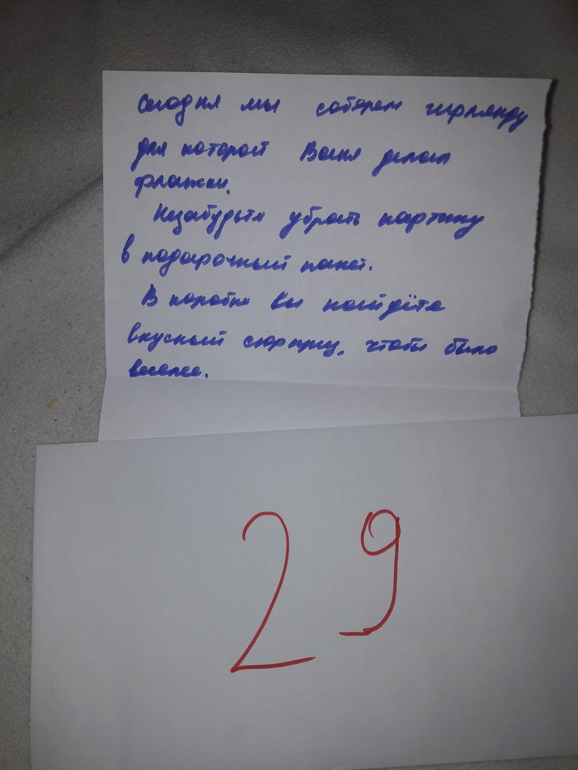 Сегодня мы соберем гирлянду
для которой Ваня делал
флажки.
Незабудьте убрать картину
в подарочный пакет.
В коробке вы найдёте
вкусный сюрприз, чтобы было
веселее.
29